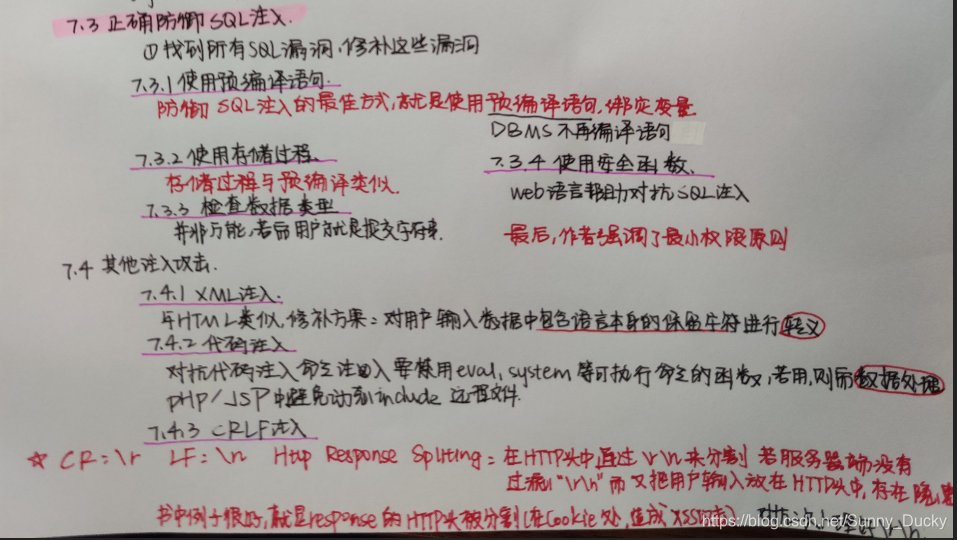 7.3 正确防御SQL注入.
①找到所有SQL漏洞,修补这些漏洞
7.3.1 使用预编译语句.
防御SQL注入的最佳方式,就是使用预编译语句,绑定变量
DBMS不再编译语句
7.3.2 使用存储过程.
存储过程与预编译类似.
7.3.3 检查数据类型
并非万能,若需用户就是提交字符串.
7.3.4 使用安全函数.
web语言帮助对抗SQL注入
最后,作者强调了最小权限原则
7.4 其他注入攻击.
7.4.1 XML注入.
与HTML类似,修补方案:对用户输入数据中包含语言本身的保留字符进行转义
7.4.2 代码注入
对抗代码注入命令注入要禁用eval, system 等可执行命令的函数,若用,则需数据处理
PHP/JSP中避免动态include 远程文件.
7.4.3 CRLF注入
☆ CR=\r LF=\n Http Response Spliting: 在HTTP头中通过\r\n来分割 若服务器端没有
过滤"\r\n"而又把用户输入放在HTTP头中,存在隐患
书中例子很好,就是response的HTTP头被分割(在Cookie处,造成XSS
\r\n.
https://blog.csdn.net/Sunny_Ducky